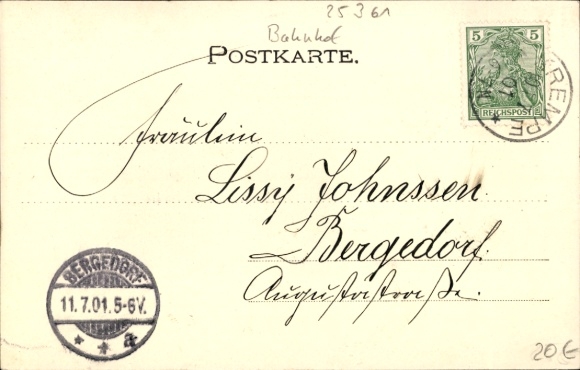 25 3 61
Bahnhof
POSTKARTE.
5 5
REICHSPOST
KREMPE
Fräulein
Lissy Johnssen
Bergedorf.
Augustastraße.
BERGEDORF
11.7.01.5-6V.
* * a
20€